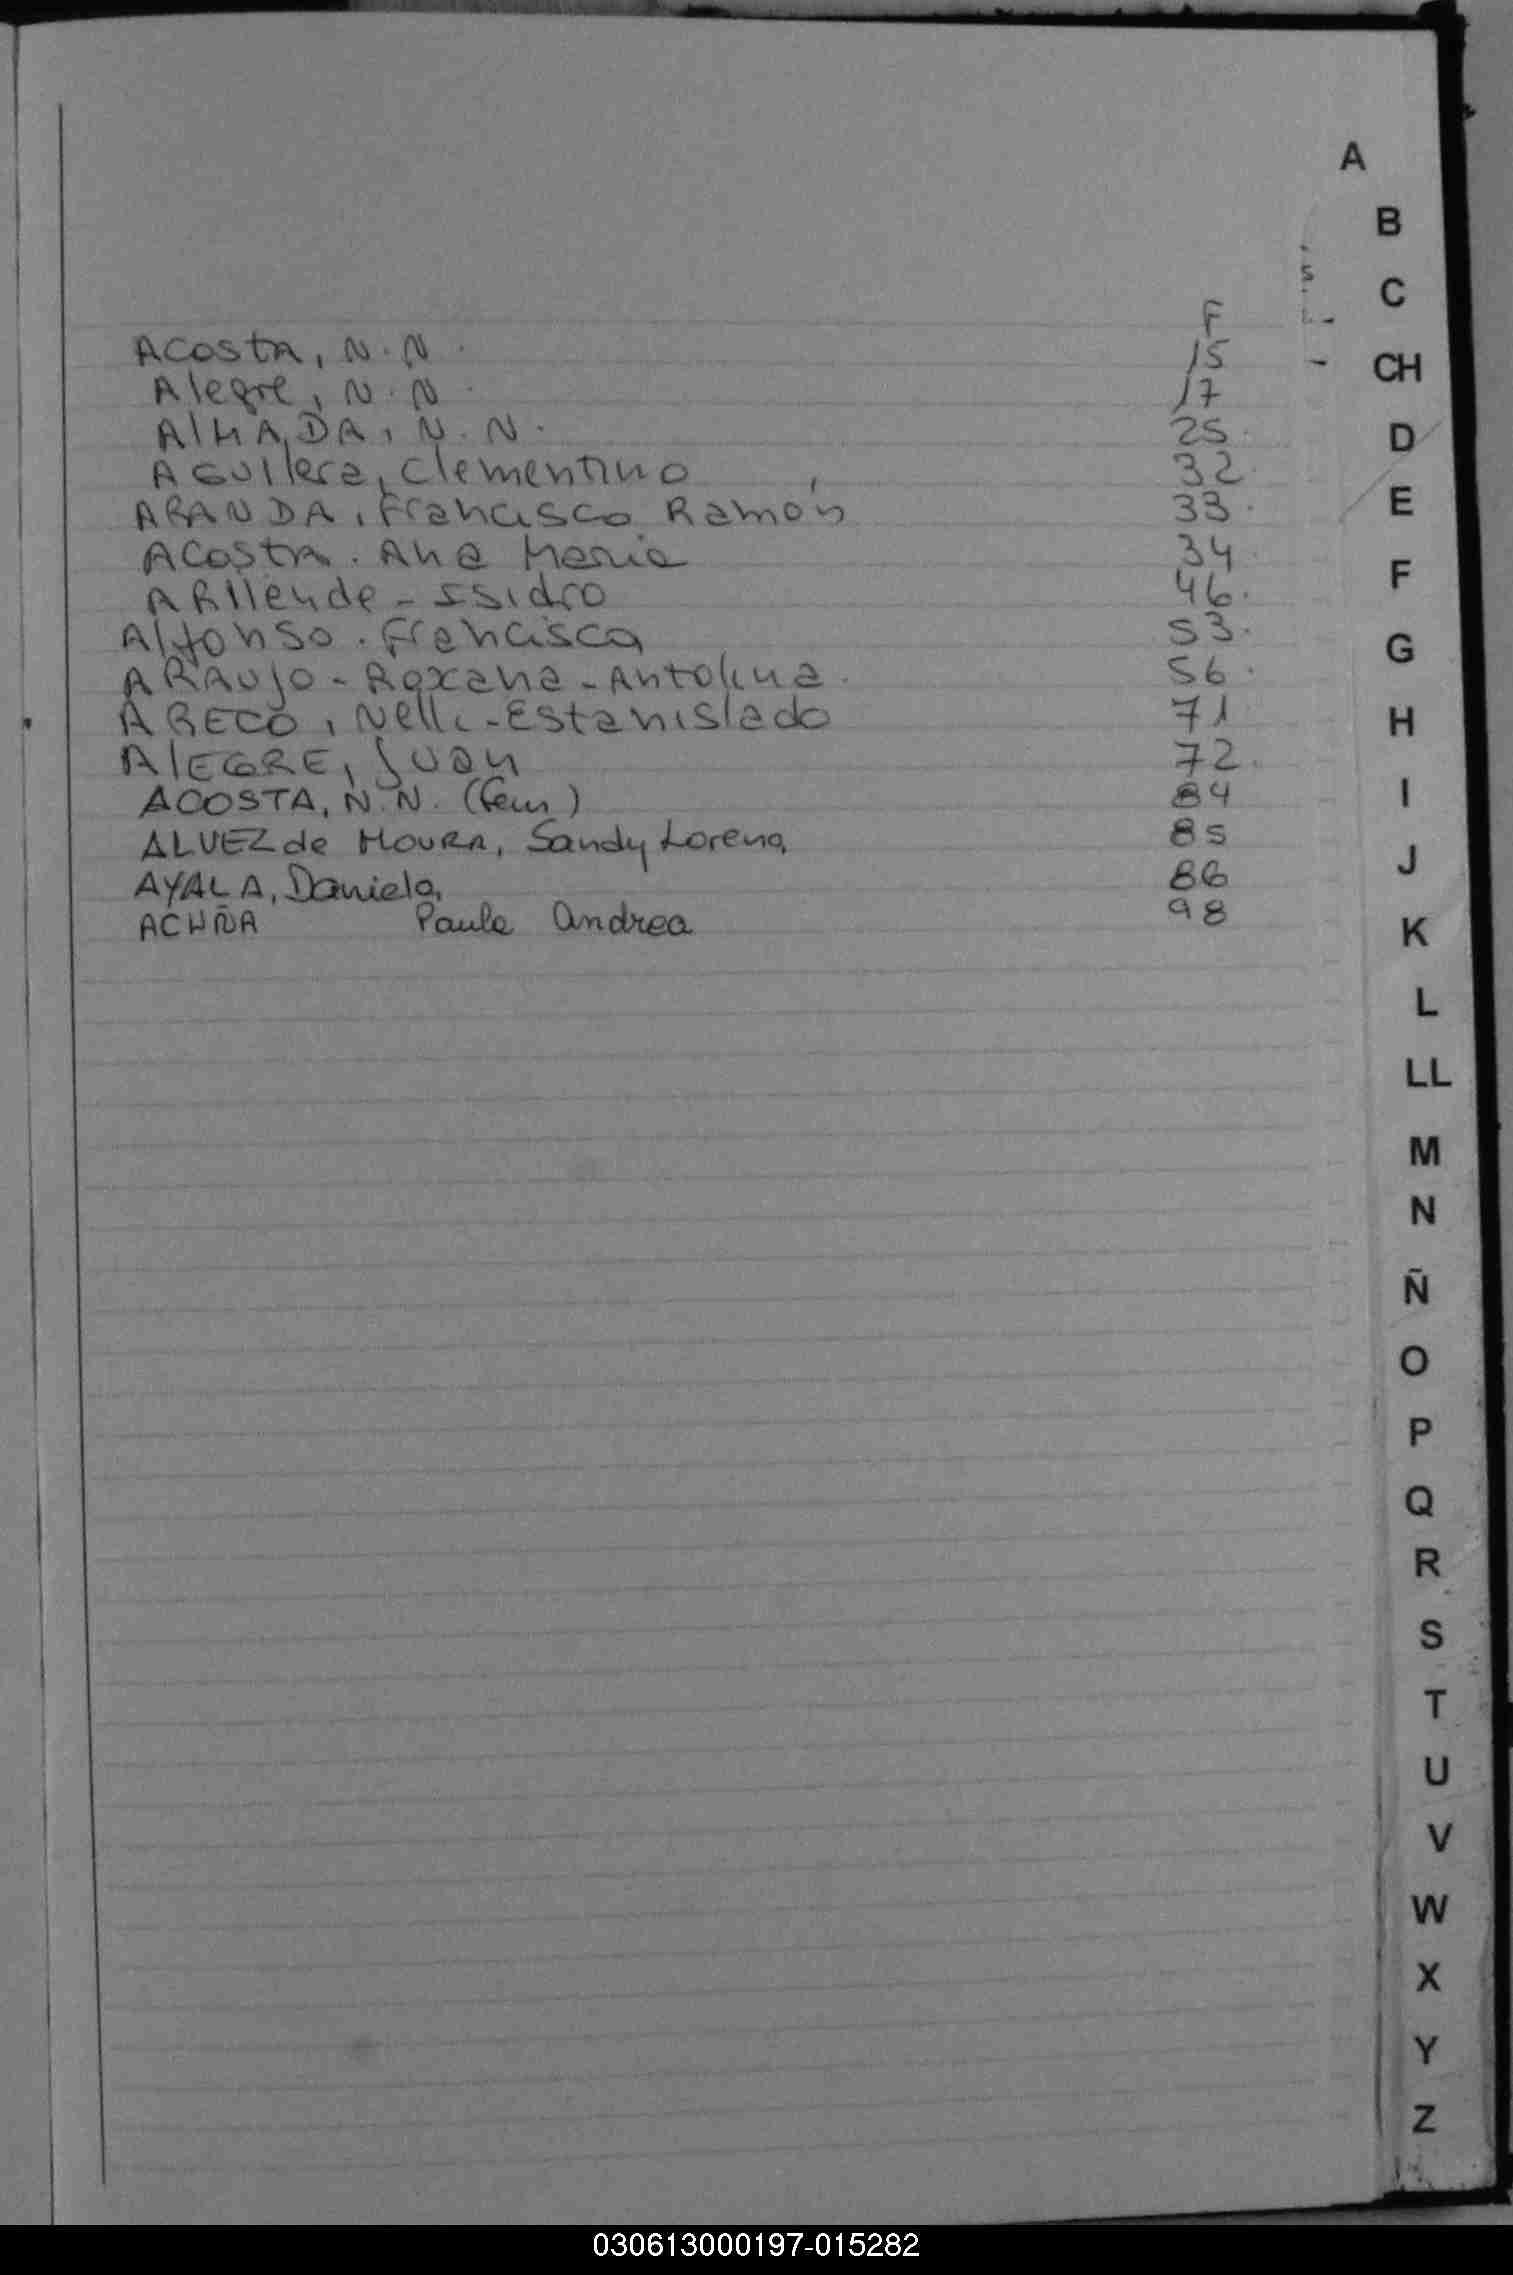 F
ACOSTA, N.N. 15
Alegre, N.N. 17
AlMADA, N.N. 25
AGUIlera, Clementino 32
ARANDA, Francisco Ramón 33
ACOSTA. Ana Maria 34
ARllende - Isidro 46
Alfonso. Francisca 53
ARAUJO - Roxana - Antolina. 56
ARECO, Nelli - Estanislada 71
AlEGRE, Juan 72
ACOSTA, N.N. (fem) 84
ALVEZ de MOURA, Sandy Lorena 85
AYALA, Daniela 86
ACUÑA Paula Andrea 98
A
B
C
CH
D
E
F
G
H
I
J
K
L
LL
M
N
Ñ
O
P
Q
R
S
T
U
V
W
X
Y
Z
030613000197-015282